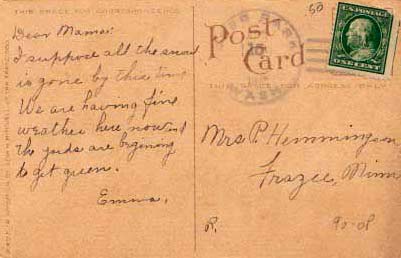 THIS SPACE FOR CORRESPONDENCE
Dear Mama:
I suppose all the snow
is gone by this time
We are having fine
weather here, now and
the yards are beginning
to get green.
Emma.
Post
Card
PARK
WASH
U.S. POSTAGE
ONE CENT
50
THIS SPACE FOR ADDRESS ONLY
Mrs P. Hemmingson
Frazee, Minn
R.
90-08